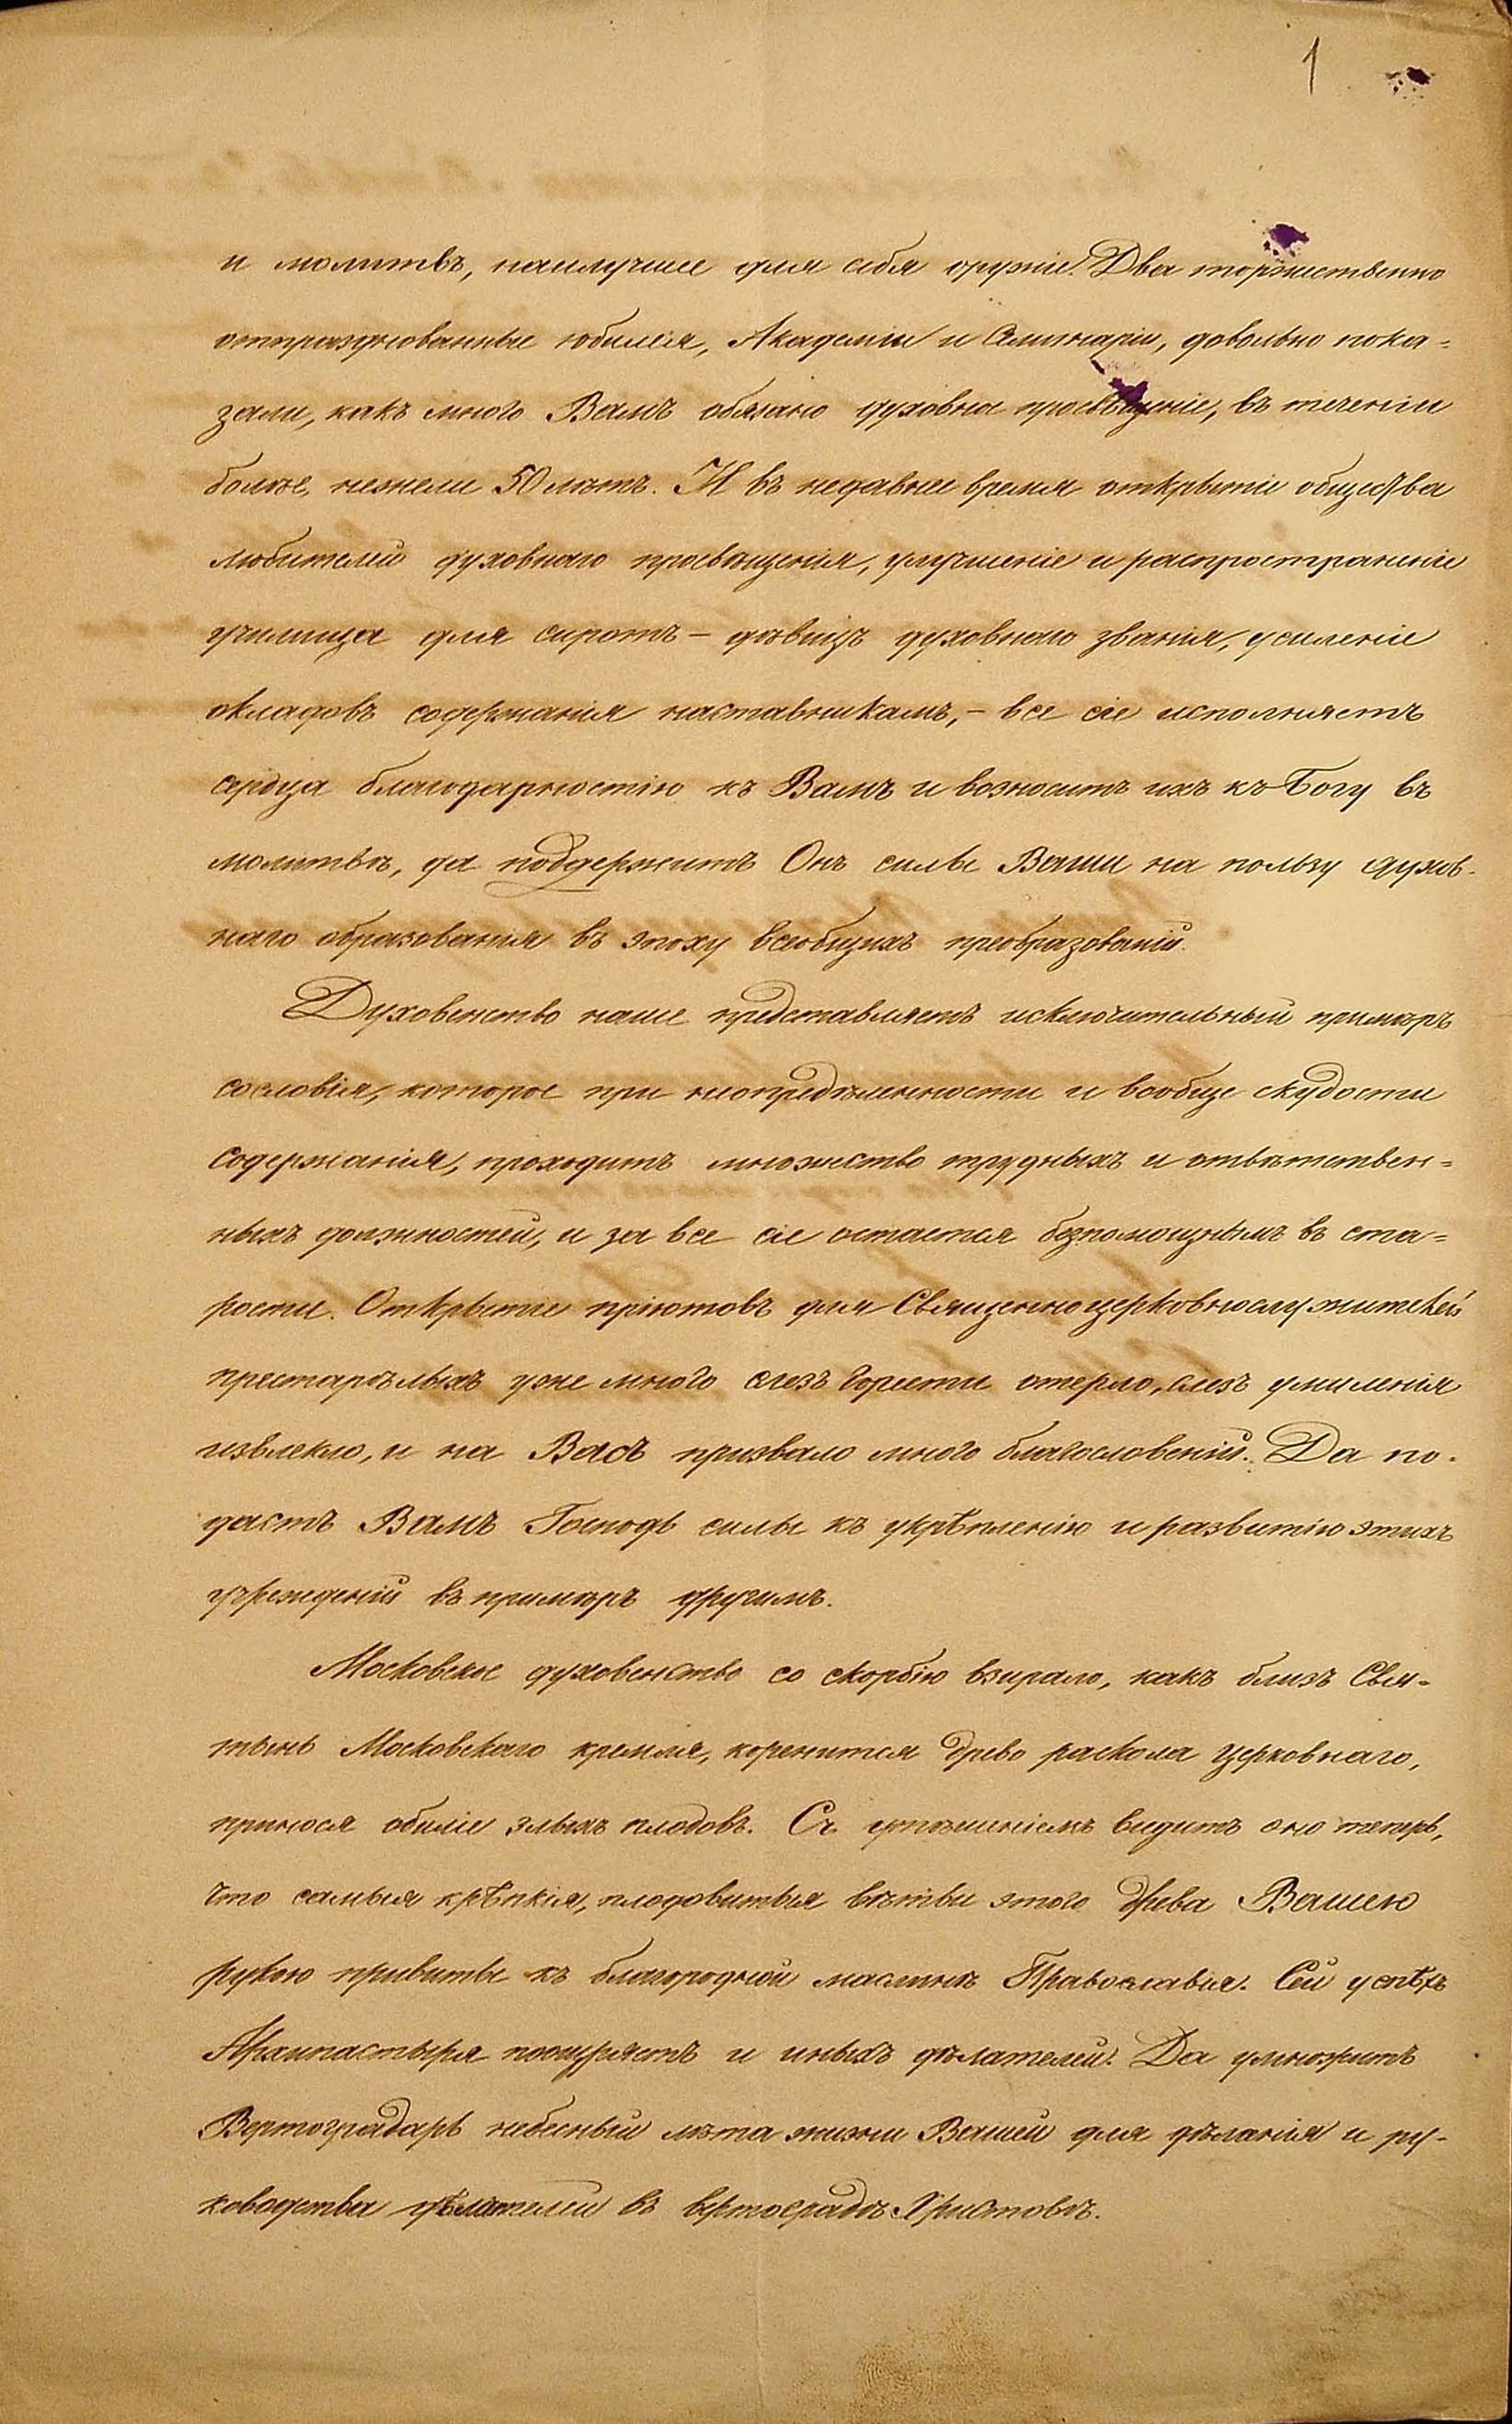 1
и молитвъ, наилучшее для себя оружіе. Два торжественно
отпразднованные юбилея, Академіи и Семинаріи, довольно пока=
зали, какъ много Вамъ обязано духовное просвѣщеніе, въ теченіи
болѣе, нежели 50 лѣтъ. И въ недавнее время открытіе общества
любителей духовнаго просвѣщенія, улучшеніе и распространеніе
училища для сиротъ – дѣвицъ духовнаго званія, усиленіе
окладовъ содержанія наставникамъ, – все сіе исполняетъ
сердца благодарностію къ Вамъ и возноситъ ихъ къ Богу въ
молитвѣ, да поддержитъ Онъ силы Ваши на пользу духов-
наго образованія въ эпоху всеобщихъ преобразованій.
Духовенство наше представляетъ исключительный примѣръ
сословія, которое при неопредѣленности и вообще скудости
содержанія, проходитъ множество трудныхъ и отвѣтствен=
ныхъ должностей, и за все сіе остается безпомощнымъ въ ста=
рости. Открытіе пріютовъ для Священноцерковнослужителей
престарѣлыхъ уже много слезъ горести отерло, слезъ умиленія
извлекло, и на Васъ призвало много благословеній. Да по-
дастъ Вамъ Господь силы къ укрѣпленію и развитію этихъ
учрежденій въ примѣръ другимъ.
Московское духовенство со скорбію взирало, какъ близъ Свя-
тынь Московскаго кремля, коренится древо раскола церковнаго,
принося обиліе злыхъ плодовъ. Съ утѣшеніемъ видитъ оно теперь,
что самыя крѣпкія, плодовитыя вѣтви этого древа Вашею
рукою привиты къ благородной маслинѣ Православія. Сей успѣхъ
Архипастыря поощряетъ и иныхъ дѣлателей. Да умножитъ
Вертоградарь небесный лѣта жизни Вашей для дѣланія и ру-
ководства дѣлателей въ вертоградѣ Христовѣ.